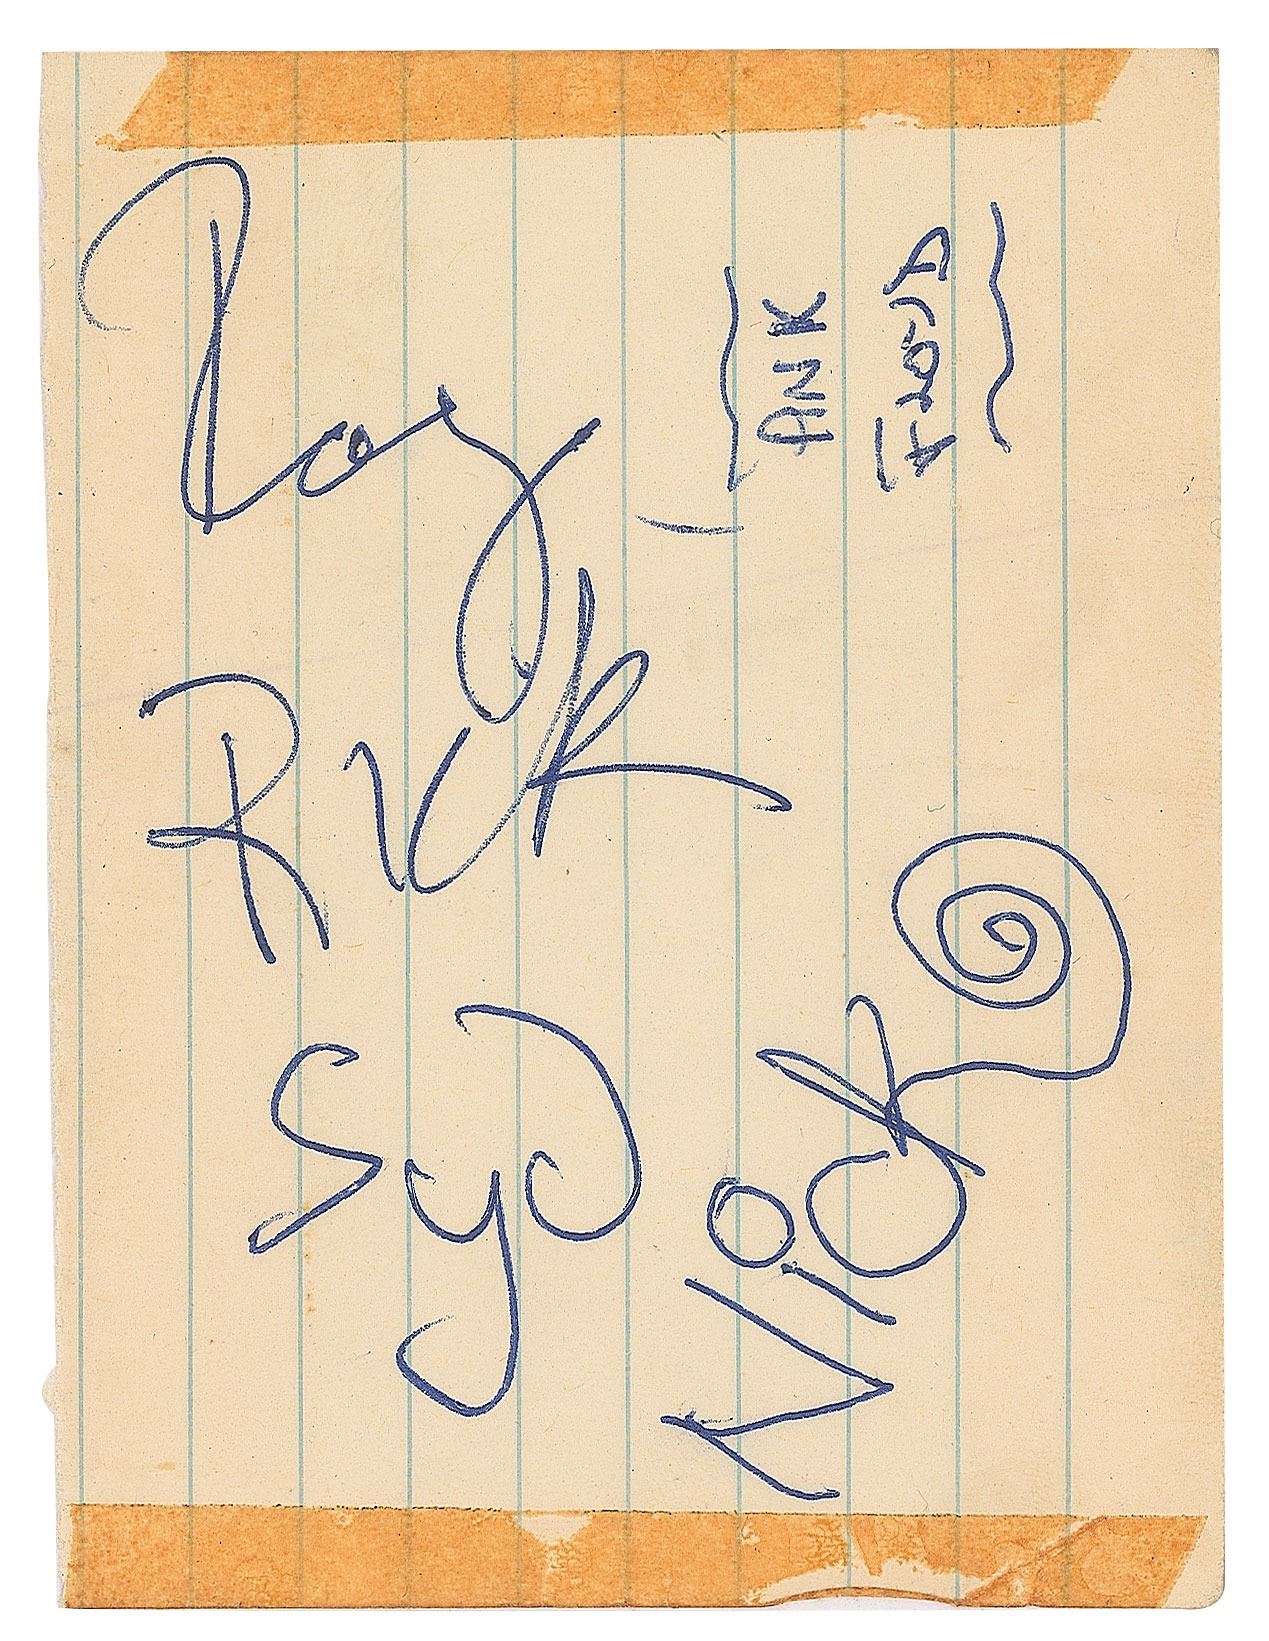 SyD Rick Rog
Nick PINK
FLOYD